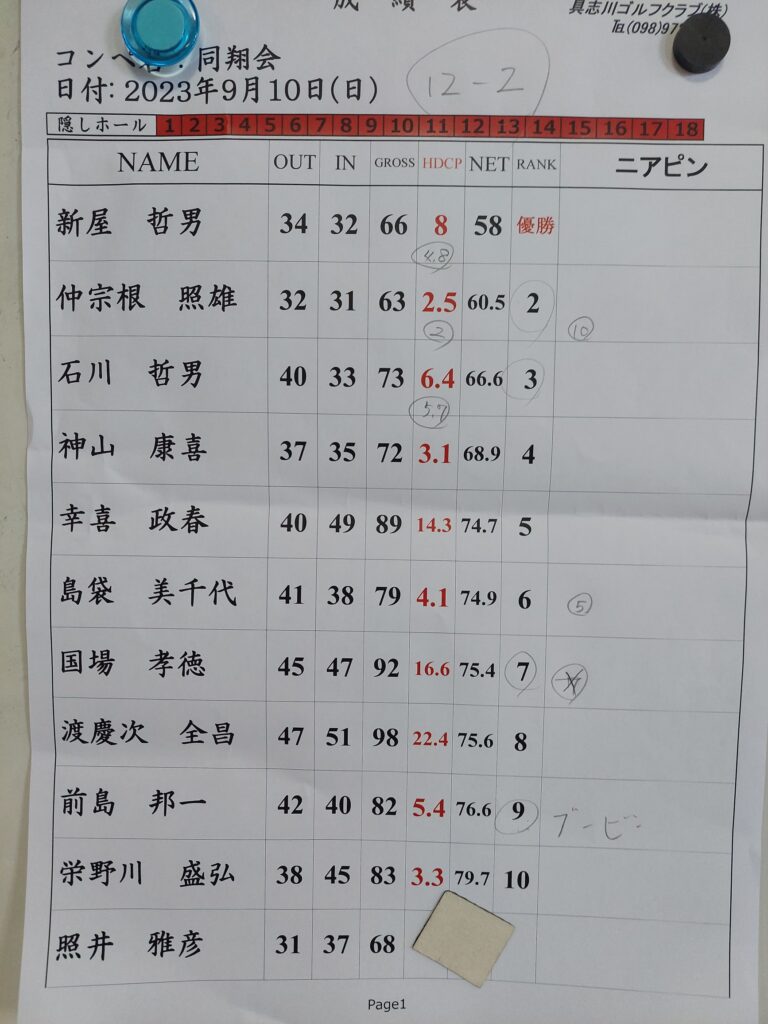 成績表
具志川ゴルフクラブ(株)
TEL(098)97
コンペ名:同翔会
日付: 2023年9月10日(日)
12-2
隠しホール 1 2 3 4 5 6 7 8 9 10 11 12 13 14 15 16 17 18
NAME OUT IN GROSS HDCP NET RANK ニアピン
新屋 哲男 34 32 66 8 58 優勝
4.8
仲宗根 照雄 32 31 63 2.5 60.5 2
2 10
石川 哲男 40 33 73 6.4 66.6 3
5.7
神山 康喜 37 35 72 3.1 68.9 4
幸喜 政春 40 49 89 14.3 74.7 5
島袋 美千代 41 38 79 4.1 74.9 6 5
国場 孝徳 45 47 92 16.6 75.4 7
渡慶次 全昌 47 51 98 22.4 75.6 8
前島 邦一 42 40 82 5.4 76.6 9 ブービー
栄野川 盛弘 38 45 83 3.3 79.7 10
照井 雅彦 31 37 68
Page1